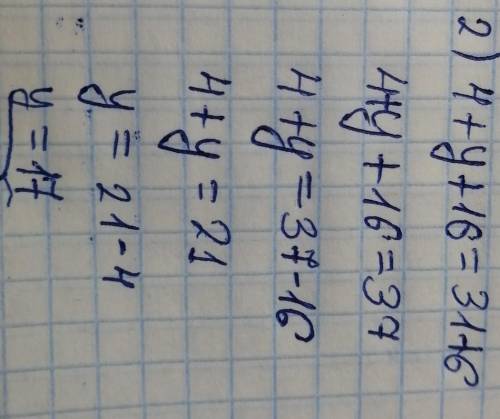 2) 4+y+16=31+6
4+y+16=37
4+y=37-16
4+y=21
y=21-4
y=17